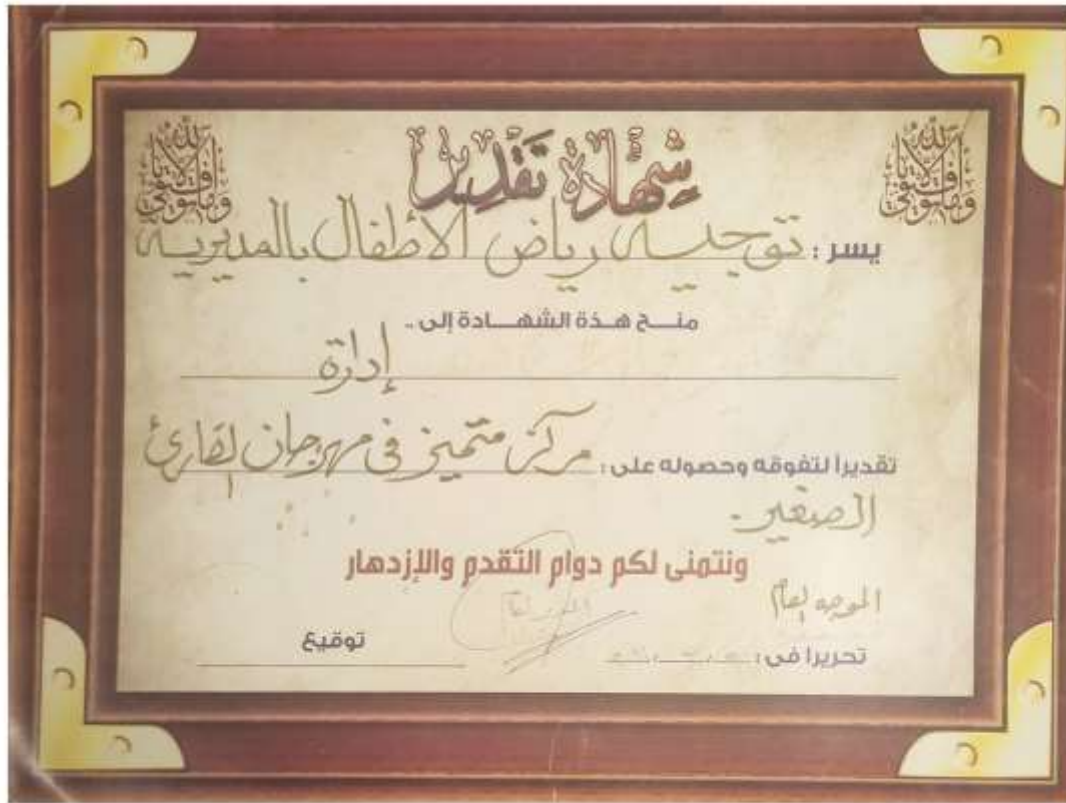 وما توفيقي إلا بالله
شهادة تقدير
وما توفيقي إلا بالله
يسر : توجيه رياض الأطفال بالمديرية
منح هذة الشهادة إلى ..
إدارة
تقديراً لتفوقه وحصوله على : مركز متميز فى مهرجان القارئ
الصغير.
ونتمنى لكم دوام التقدم والإزدهار
الموجه العام
توقيع
تحريرا فى :